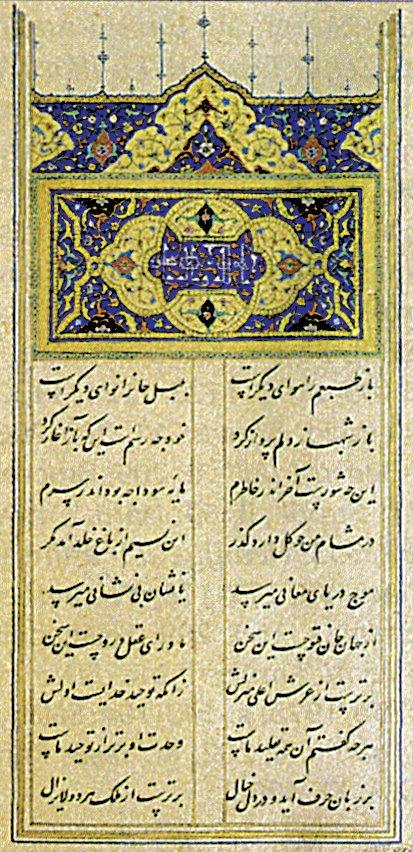 باز طبعم را هوای دیگر است بلبل جانرا نوای دیگر است
باز شهباز دلم پرواز کرد خود چه رسم است این که باز آغاز کرد
این چه شورست آخر اندر خاطرم مایه سودا چه بود اندر سرم
در مشام من چو گل دارد گذر این نسیم از باغ خلد آمد مگر
موج دریای معانی میرسد یا نشان بی نشانی میرسد
از جهان جان فتوحست این سخن ماورای عقل و روحست این سخن
برترست از عرش اعلی منزلش زانکه توحید خدایست اولش
هرچه گفتم آن همه تقلید ماست وحدت او برتر از توحید ماست
بر زبان حرف آید و در دل خیال برترست از ملک هر دو لایزال